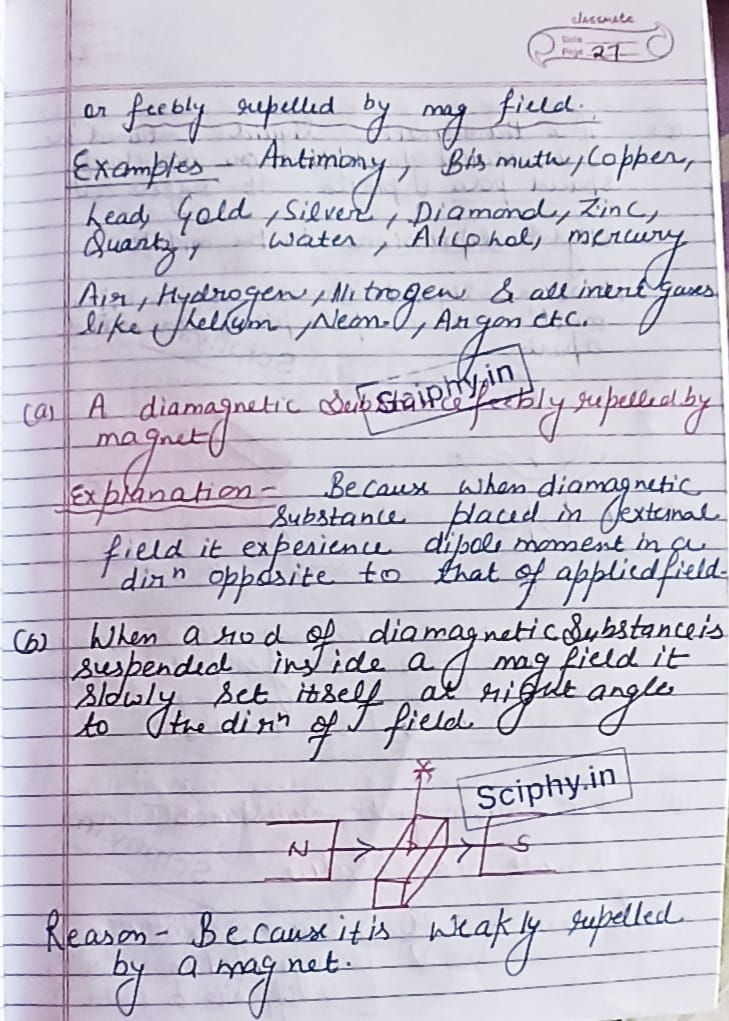 classmate
Date
Page 27
or feebly repelled by mag field.
Examples - Antimony, Bismuth, Copper,
Lead, Gold, Silver, Diamond, Zinc,
Quartz, Water, Alcohol, mercury
Air, Hydrogen, Nitrogen & all inert gases
like, Helium, Neon, Argon etc.
Sciphy.in
(a) A diamagnetic Substance feebly repelled by
magnet
Explanation - Because when diamagnetic
Substance placed in external
field it experience dipole moment in a
dirn opposite to that of applied field.
(b) When a rod of diamagnetic Substance is
suspended inside a mag field it
slowly set itself at right angle
to the dirn of field.
Sciphy.in
N S
Reason - Because it is weakly repelled
by a magnet.